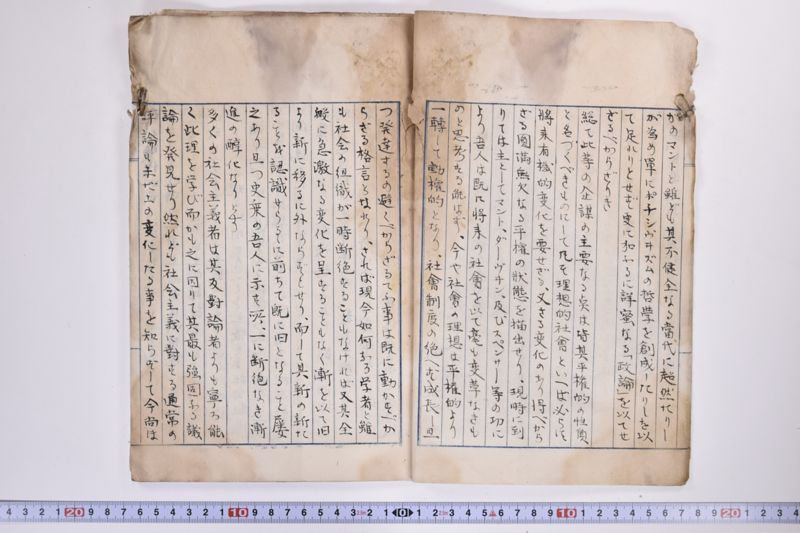 かのマントと雖ども其不健全なる當代に超然たりし
が為め單に和チシヴヰズムの哲學を創成したりしを以
て足れりとせず、更に和ふるに詳蜜なる「政論」を以てせ
ざるべからざりき
総て此等の企謀の主要なる矣は時其平権的の性質
と名づくべきものにして凡を理想的社會といへば必らず
將来有機的変化を要せざる又さる変化のあり得べから
ざる圓満無欠なる平権の狀態を描出せり、現時に到
りては主としてマント、ダーヴヰン及びスペンサー等の功に
より吾人は既に將来の社會を以て毫も変革なきも
のと思考する能はず、今や社會の理想は平権的より
一轉して動権的となり、社會制度の絶へざる成長、且
つ発達するの避くべからざるてふ事は既に動かすべか
らざる格言となれり、されば現今如何なる学者と雖
も社會の組織が一時断絶することもなければ又其全
般に急激なる変化を呈することもなく漸を以て旧
より新に移るに外ならずとせり、而して其新の新た
ることを認識せらるゝに前ちて既に旧となること屡
之あり且つ史乗の吾人に示す所、一に断絶なき漸
進の孵化なりと云ふ
多くの社会主義者は其反對論者よりも寧ろ能
く此理を学び而かも之に因りて其最も強固なる議
論を発見せり然れども社会主義に對する通常の
評論は未だ此の変化したる事を知らずして今尚ほ
4 3 2 1 20 9 8 7 6 5 4 3 2 1 10 9 8 7 6 5 4 3 2 1 0 1 2 3 4 5 6 7 8 9 10 1 2 3 4 5 6 7 8 9 20 1 2 3 4